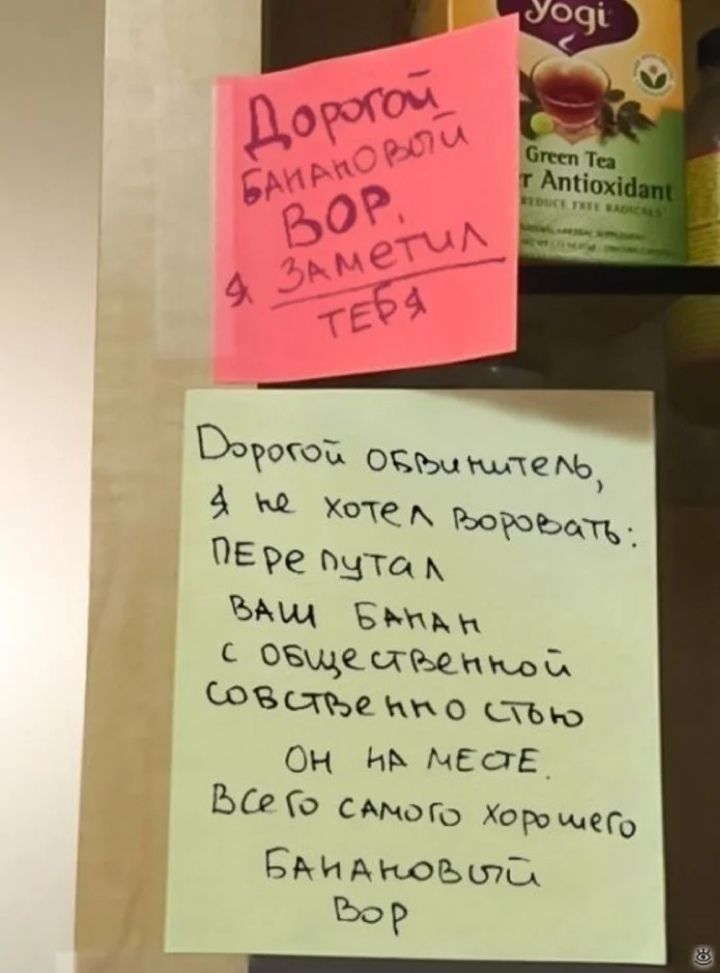 Yogi
Green Tea
r Antioxidant
REDUCE FREE RADICALS
Дорогой
БАНАНОВЫЙ
ВОР,
Я ЗАМЕТИЛ
ТЕБЯ
Дорогой обвинитель,
Я не хотел воровать:
ПЕРЕПУТАЛ
ВАШ БАНАН
с общественной
собственностью
ОН НА МЕСТЕ.
Всего самого хорошего
БАНАНОВЫЙ
Вор